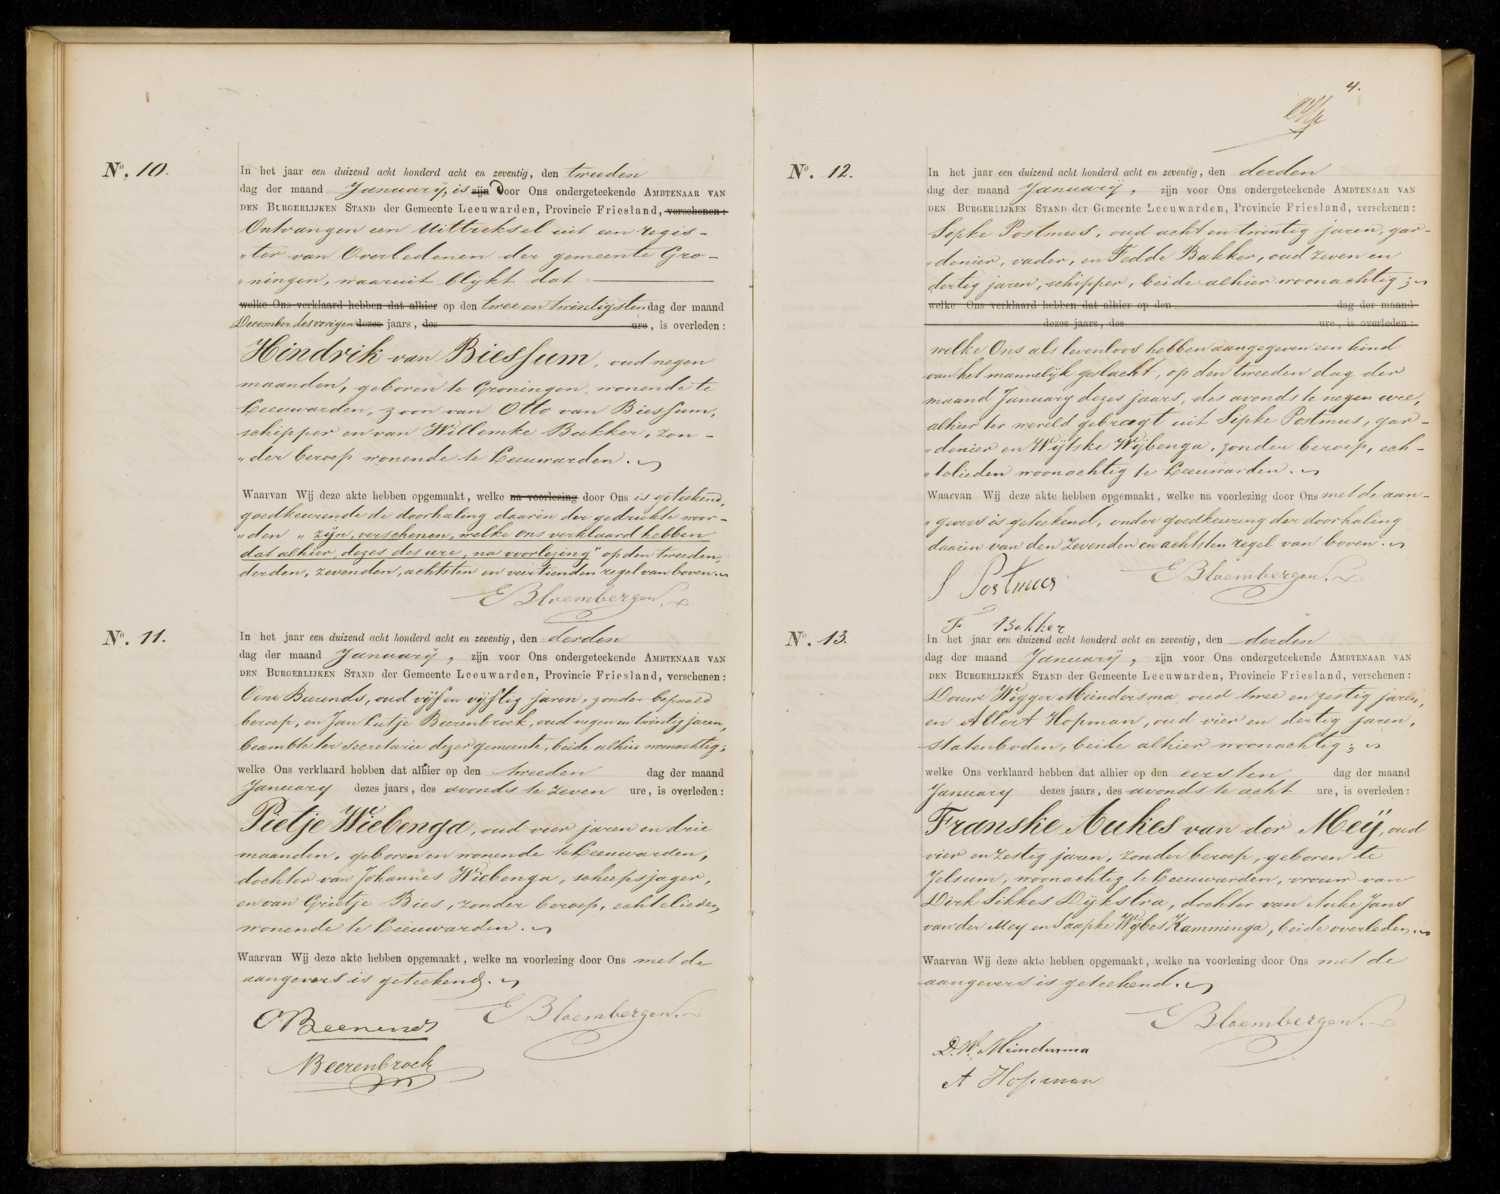 No. 10.
In het jaar een duizend acht honderd acht en zeventig, den tweeden
dag der maand January, is zijn door Ons ondergeteekende AMBTENAAR VAN
DEN BURGERLIJKEN STAND der Gemeente Leeuwarden, Provincie Friesland, verschenen:
Ontvangen een Uittreksel uit een regis-
„ter van Overledenen der gemeente Gro-
„ningen, waaruit blijkt dat
welke Ons verklaard hebben dat alhier op den twee en twintigsten dag der maand
December des vorigen dezes jaars, des ure, is overleden:
Hindrik van Biessum, oud negen
maanden, geboren te Groningen, wonende te
Leeuwarden, zoon van Otto van Biessum,
schipper en van Willemke Bakker, zon-
„der beroep wonende te Leeuwarden.
Waarvan Wij deze akte hebben opgemaakt, welke na voorlezing door Ons is geteekend,
goedkeurende de doorhaling daarin der gedrukte woor-
„den „zijn, verschenen, welke ons verklaard hebben
dat alhier, dezes des ure, na voorlezing" op den tweeden,
derden, zevenden, achtsten en veertienden regel van boven.
E Bloembergen.
No. 11.
In het jaar een duizend acht honderd acht en zeventig, den derden
dag der maand January, zijn voor Ons ondergeteekende AMBTENAAR VAN
DEN BURGERLIJKEN STAND der Gemeente Leeuwarden, Provincie Friesland, verschenen:
Oene Berends, oud vijf en vijftig jaren, zonder bepaald
beroep, en Jan Beerenbrock, oud negen en twintig jaren,
beambte ter secretarie dezer gemeente, beide alhier woonachtig;
welke Ons verklaard hebben dat alhier op den tweeden dag der maand
January dezes jaars, des avonds te zeven ure, is overleden:
Pietje Wiebenga, oud vier jaren en drie
maanden, geboren en wonende te Leeuwarden,
dochter van Johannes Wiebenga, scheepsjager,
en van Grietje Bies, zonder beroep, echtelieden,
wonende te Leeuwarden.
Waarvan Wij deze akte hebben opgemaakt, welke na voorlezing door Ons met de
aangevers is geteekend.
E Bloembergen.
Beerenbrock
4.
No. 12.
In het jaar een duizend acht honderd acht en zeventig, den derden
dag der maand January, zijn voor Ons ondergeteekende AMBTENAAR VAN
DEN BURGERLIJKEN STAND der Gemeente Leeuwarden, Provincie Friesland, verschenen:
Sipke Postmus, oud acht en twintig jaren, gar-
„denier, vader, en Fedde Bakker, oud zeven en
dertig jaren, schipper, beide alhier woonachtig;
welke Ons verklaard hebben dat alhier op den dag der maand
dezes jaars, des ure, is overleden:
welke Ons als levenloos hebben aangegeven een kind
van het mannelijk geslacht, op den tweeden dag der
maand January dezes jaars, des avonds te negen ure,
alhier ter wereld gebragt uit Sipke Postmus, gar-
„denier en Wytske Wybenga, zonder beroep, ech-
„telieden woonachtig te Leeuwarden.
Waarvan Wij deze akte hebben opgemaakt, welke na voorlezing door Ons met de aan-
„gevers is geteekend, onder goedkeuring der doorhaling
daarin van den zevenden en achtsten regel van boven.
S Postmus
E Bloembergen.
F Bakker
No. 13.
In het jaar een duizend acht honderd acht en zeventig, den derden
dag der maand January, zijn voor Ons ondergeteekende AMBTENAAR VAN
DEN BURGERLIJKEN STAND der Gemeente Leeuwarden, Provincie Friesland, verschenen:
Douwe Wigger Meindersma, oud twee en zestig jaren,
en Albert Hopman, oud vier en dertig jaren,
statenboden, beide alhier woonachtig;
welke Ons verklaard hebben dat alhier op den eersten dag der maand
January dezes jaars, des avonds te acht ure, is overleden:
Franske Aukes van der Meij, oud
vier en zestig jaren, zonder beroep, geboren te
Jelsum, woonachtig te Leeuwarden, vrouw van
Dirk Sikkes Dijkstra, dochter van Auke Jans
van der Mey en Saapke Wybes Kamminga, beide overleden.
Waarvan Wij deze akte hebben opgemaakt, welke na voorlezing door Ons met de
aangevers is geteekend.
E Bloembergen.
D. W. Meindersma
A Hopman